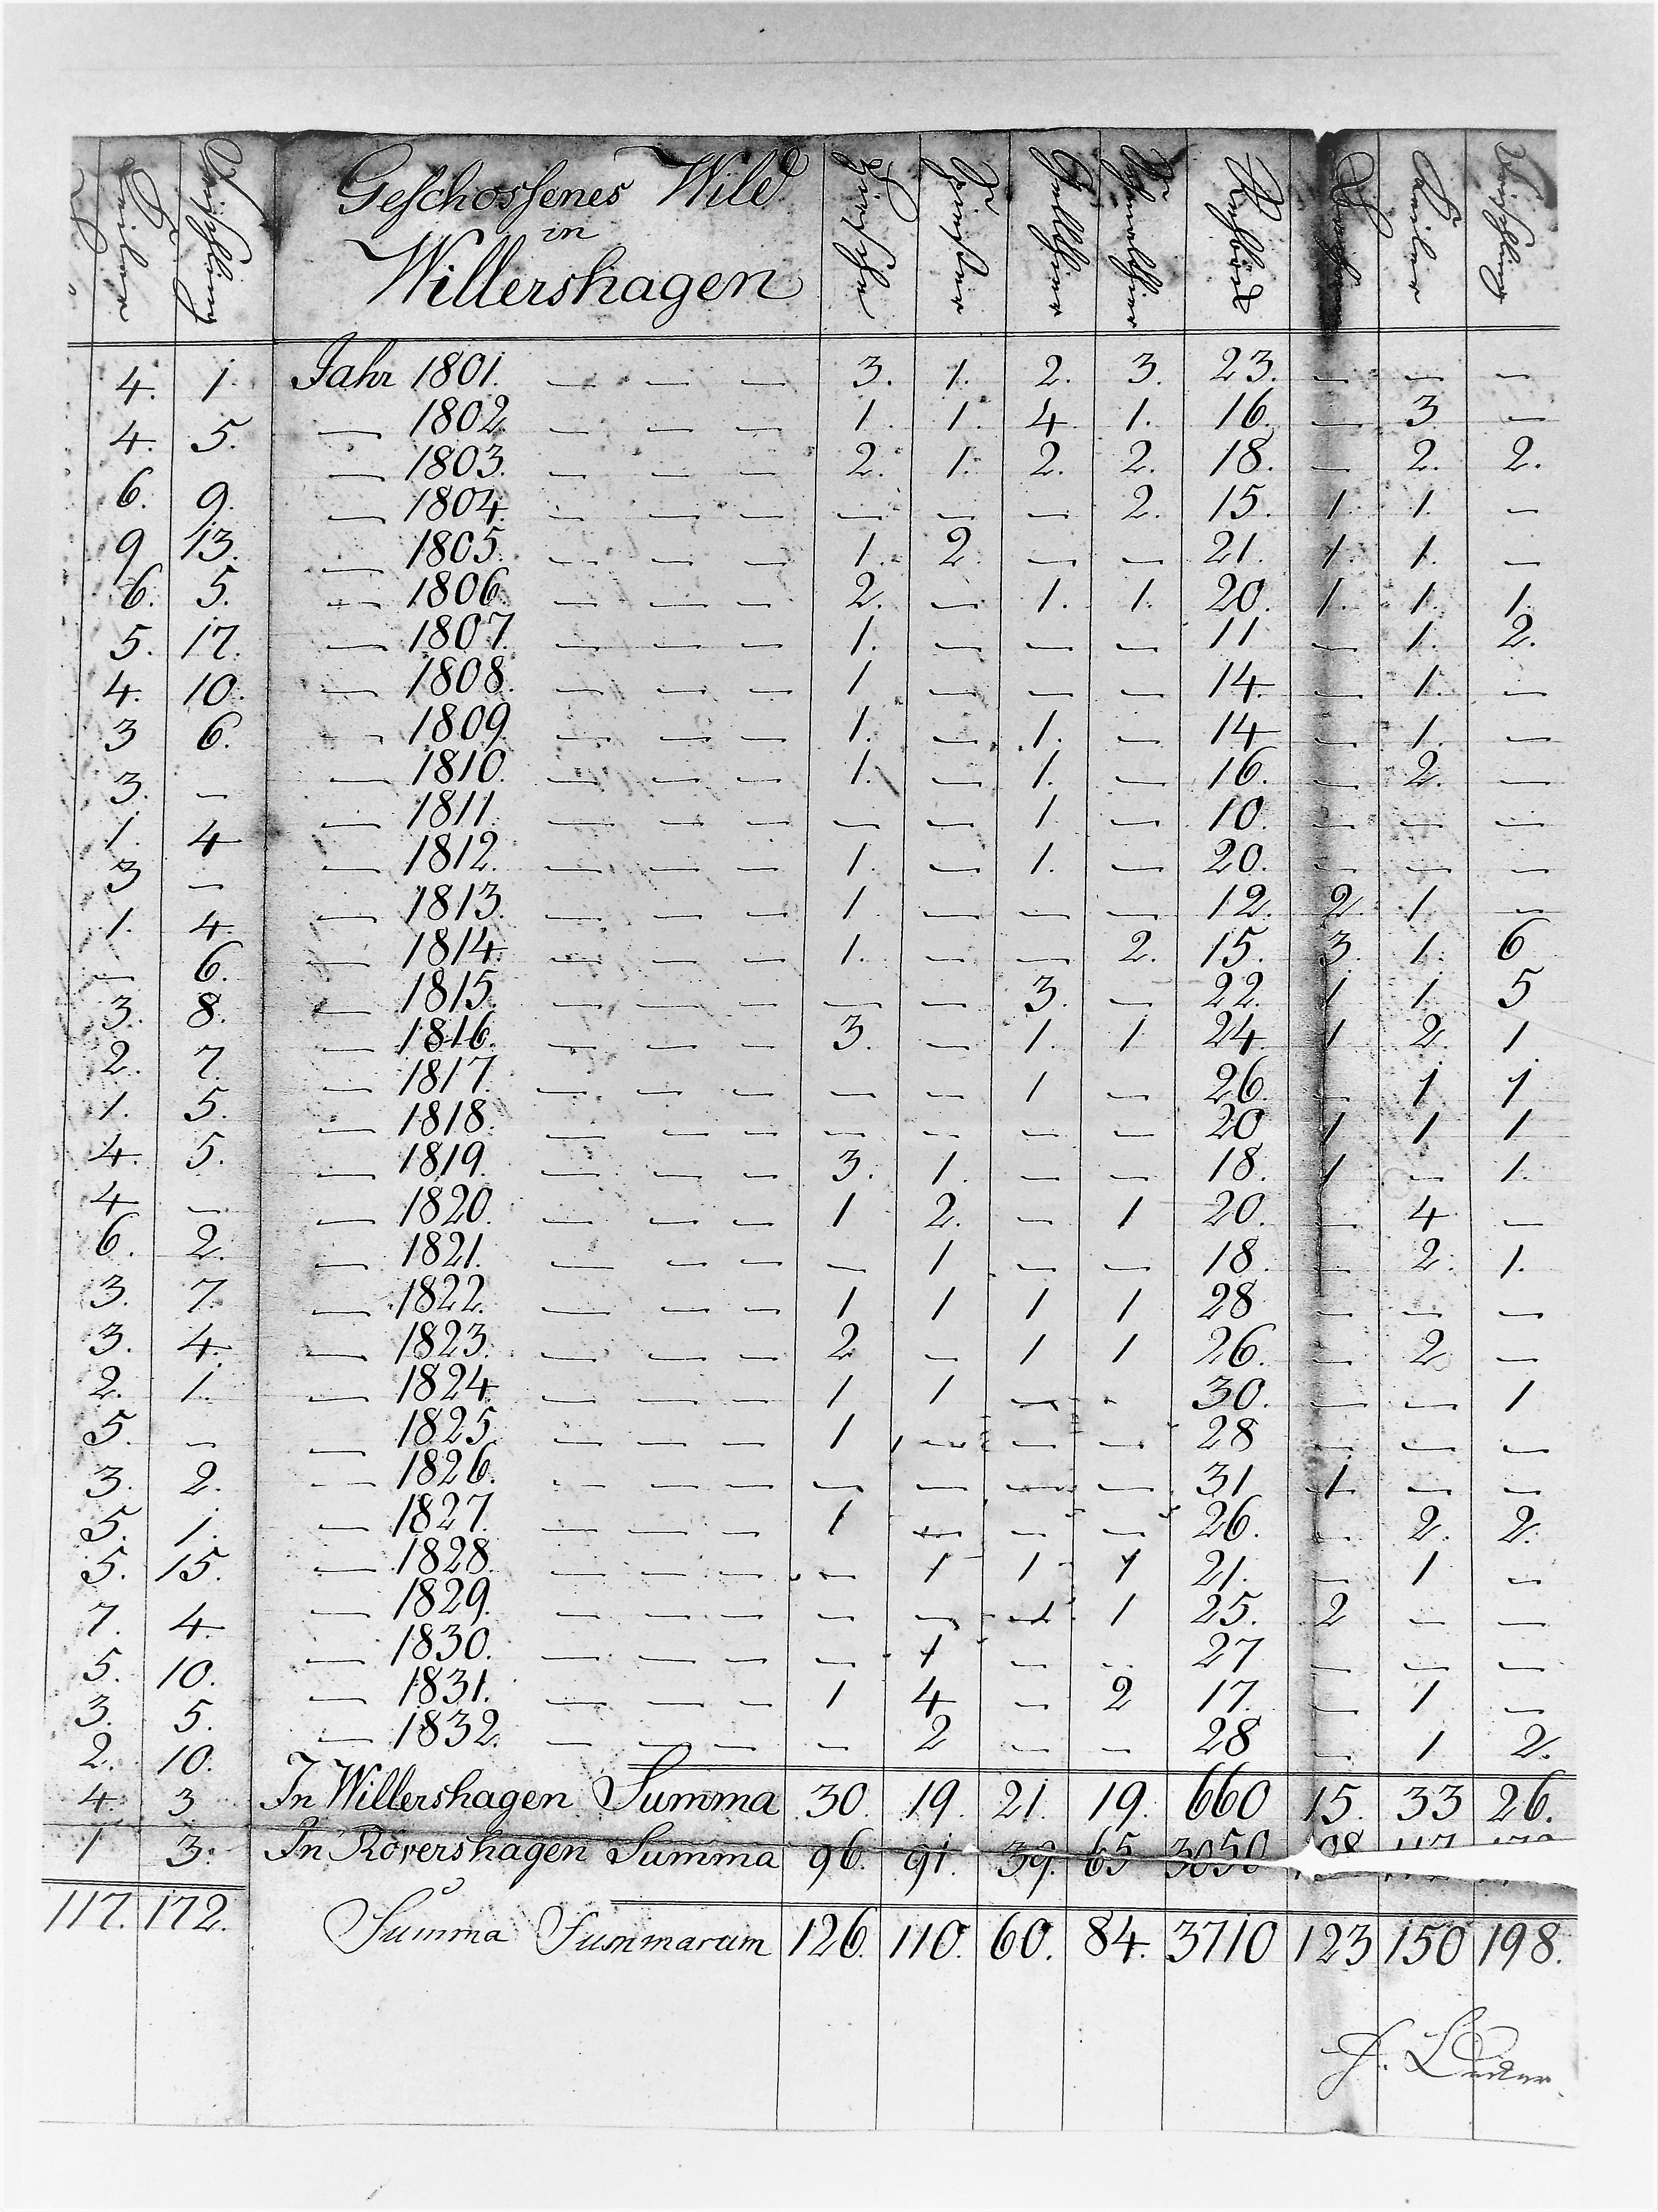 Keiler Frischling
4. 1.
4. 5.
6. 9.
9 13.
6. 5.
5. 17.
4. 10.
3 6.
3. —
1. 4
3 —
1. 4.
— 6.
3. 8.
2. 7.
1. 5.
4. 5.
4 —
6. 2.
3. 7.
3. 4.
2. 1.
5. —
3. 2.
5. 1.
5. 15.
7. 4.
5. 10.
3. 5.
2. 10.
4. 3
1 3.
117. 172.
Geschossenes Wild
in
Willershagen
Hirsche Spiesser Gellthier Schmalthier Rehböck Keiler Frischling
Jahr 1801. — — — 3. 1. 2. 3. 23. — — —
— 1802. — — — 1. 1. 4. 1. 16. — 3 —
— 1803. — — — 2. 1. 2. 2. 18. — 2. 2.
— 1804. — — — — — — 2. 15. 1. 1. —
— 1805. — — — 1. 2. — — 21. 1. 1. —
— 1806. — — — 2. — 1. 1. 20. 1. 1. 1.
— 1807. — — — 1. — — — 11. — 1. 2.
— 1808. — — — 1 — — — 14. — 1. —
— 1809. — — — 1. — 1. — 14 — 1. —
— 1810. — — — 1. — 1. — 16. — 2. —
— 1811. — — — — — 1. — 10. — — —
— 1812. — — — 1. — 1. — 20. — — —
— 1813. — — — 1. — — — 12. 2. 1. —
— 1814. — — — 1. — — 2. 15. 3. 1. 6
— 1815. — — — — — 3. — 22. 1 1. 5
— 1816. — — — 3. — 1. 1 24. 1 2. 1.
— 1817. — — — — — 1 — 26. — 1 1
— 1818. — — — — — — — 20 1 1 1
— 1819. — — — 3. 1. — — 18. 1 — 1.
— 1820. — — — 1 2. — 1 20. — 4. —
— 1821. — — — — 1 — — 18. — 2. 1.
— 1822. — — — 1 1 1 1 28 — — —
— 1823. — — — 2 — 1 1 26. — 2 —
— 1824. — — — 1 1 — — 30. — — 1
— 1825. — — — 1 — — — 28 — — —
— 1826. — — — — — — — 31 1. — —
— 1827. — — — 1 — — — 26. — 2. 2.
— 1828. — — — — 1 1 1 21. — 1 —
— 1829. — — — — — 1 1 25. 2 — —
— 1830. — — — — 1 — — 27 — — —
— 1831. — — — 1 4 — 2 17. — 1 —
— 1832. — — — — 2 — — 28 — 1 2.
In Willershagen Summa 30. 19. 21. 19. 660 15. 33 26.
In Rövershagen Summa 96. 91. 39. 65 3050 108 117 172
Summa Summarum 126. 110. 60. 84. 3710 123 150 198.